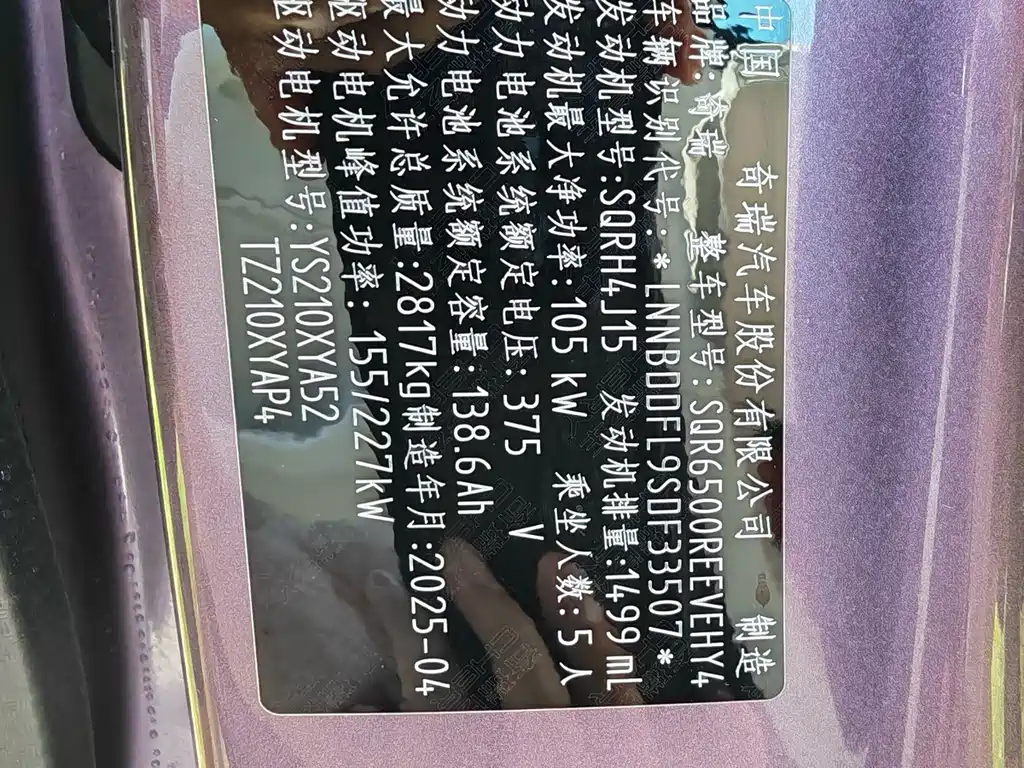 中国 奇瑞汽车股份有限公司 制造
品牌:奇瑞 整车型号:SQR6500REEVEHY4
车辆识别代号:*LNNBDDFL9SDF33507*
发动机型号:SQRH4J15 发动机排量:1499mL
发动机最大净功率:105 kW 乘坐人数:5人
动力电池系统额定电压:375 V
动力电池系统额定容量:138.6Ah
最大允许总质量:2817kg 制造年月:2025-04
驱动电机峰值功率:155/227kW
驱动电机型号:YS210XYA52
TZ210XYAP4